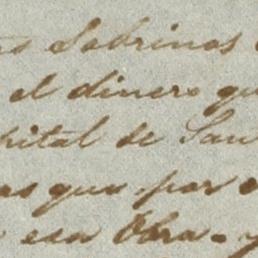 as Sobrinas
el dinero qu
pital de San
as que por
esa Obra - y